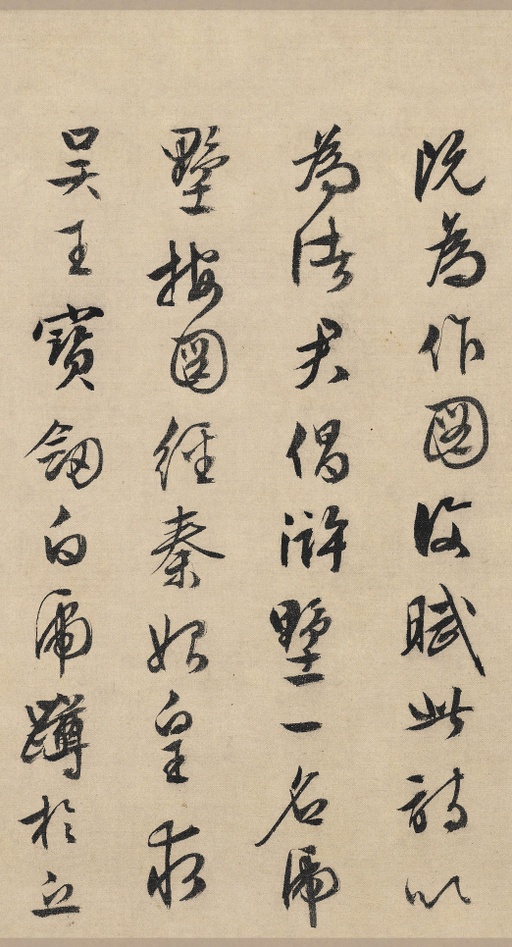 既為作圖復賦此詩以
為諸君倡滸墅一名虎
墅按圖經秦始皇求
吳王寶劒白虎蹲於丘